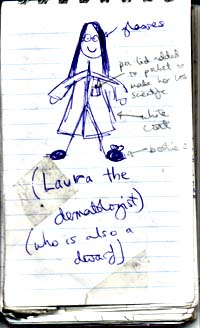 glasses
pen lid added
to pocket to
make her look
white
coat
(Laura the
dermatologist)
(who is also a
dwarf)